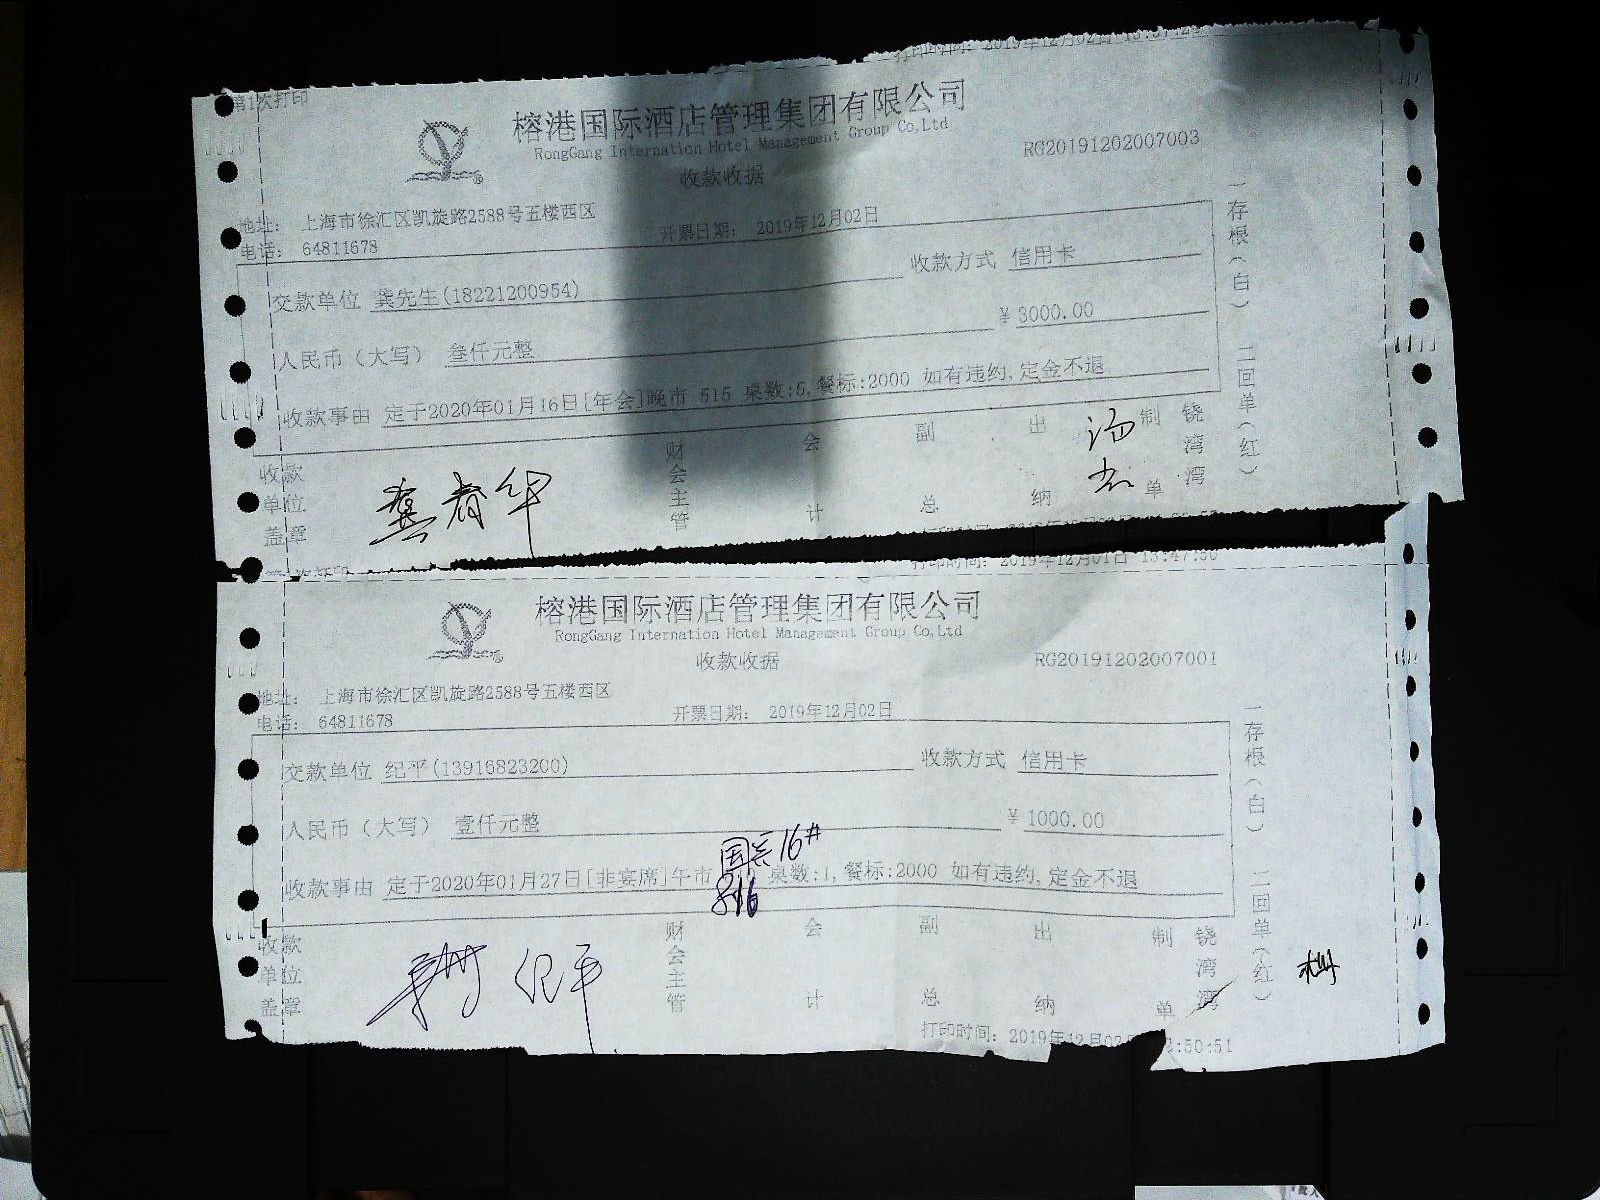 第1次打印
打印时间：2019年12月02日 13:37:2
榕港国际酒店管理集团有限公司
RongGang Internation Hotel Management Group Co,Ltd
收款收据
RG20191202007003
地址： 上海市徐汇区凯旋路2588号五楼西区
电话： 64811678
开票日期： 2019年12月02日
交款单位 龚先生(18221200954)
收款方式 信用卡
人民币（大写） 叁仟元整
¥3000.00
收款事由 定于2020年01月16日[年会]晚市 515 桌数:5,餐标:2000 如有违约,定金不退
收款单位盖章
龚春华
财会主管
会计
副总
出纳
制单
饶湾湾
一存根（白） 二回单（红）
打印时间：2019年12月01日 13:47:30
榕港国际酒店管理集团有限公司
RongGang Internation Hotel Management Group Co,Ltd
收款收据
RG20191202007001
地址： 上海市徐汇区凯旋路2588号五楼西区
电话： 64811678
开票日期： 2019年12月02日
交款单位 纪平(13916823200)
收款方式 信用卡
人民币（大写） 壹仟元整
¥1000.00
16#
收款事由 定于2020年01月27日[非宴席]午市 816 桌数:1,餐标:2000 如有违约,定金不退
收款单位盖章
纪平
财会主管
会计
副总
出纳
制单
饶湾湾
一存根（白） 二回单（红）
打印时间：2019年12月02 3:50:51